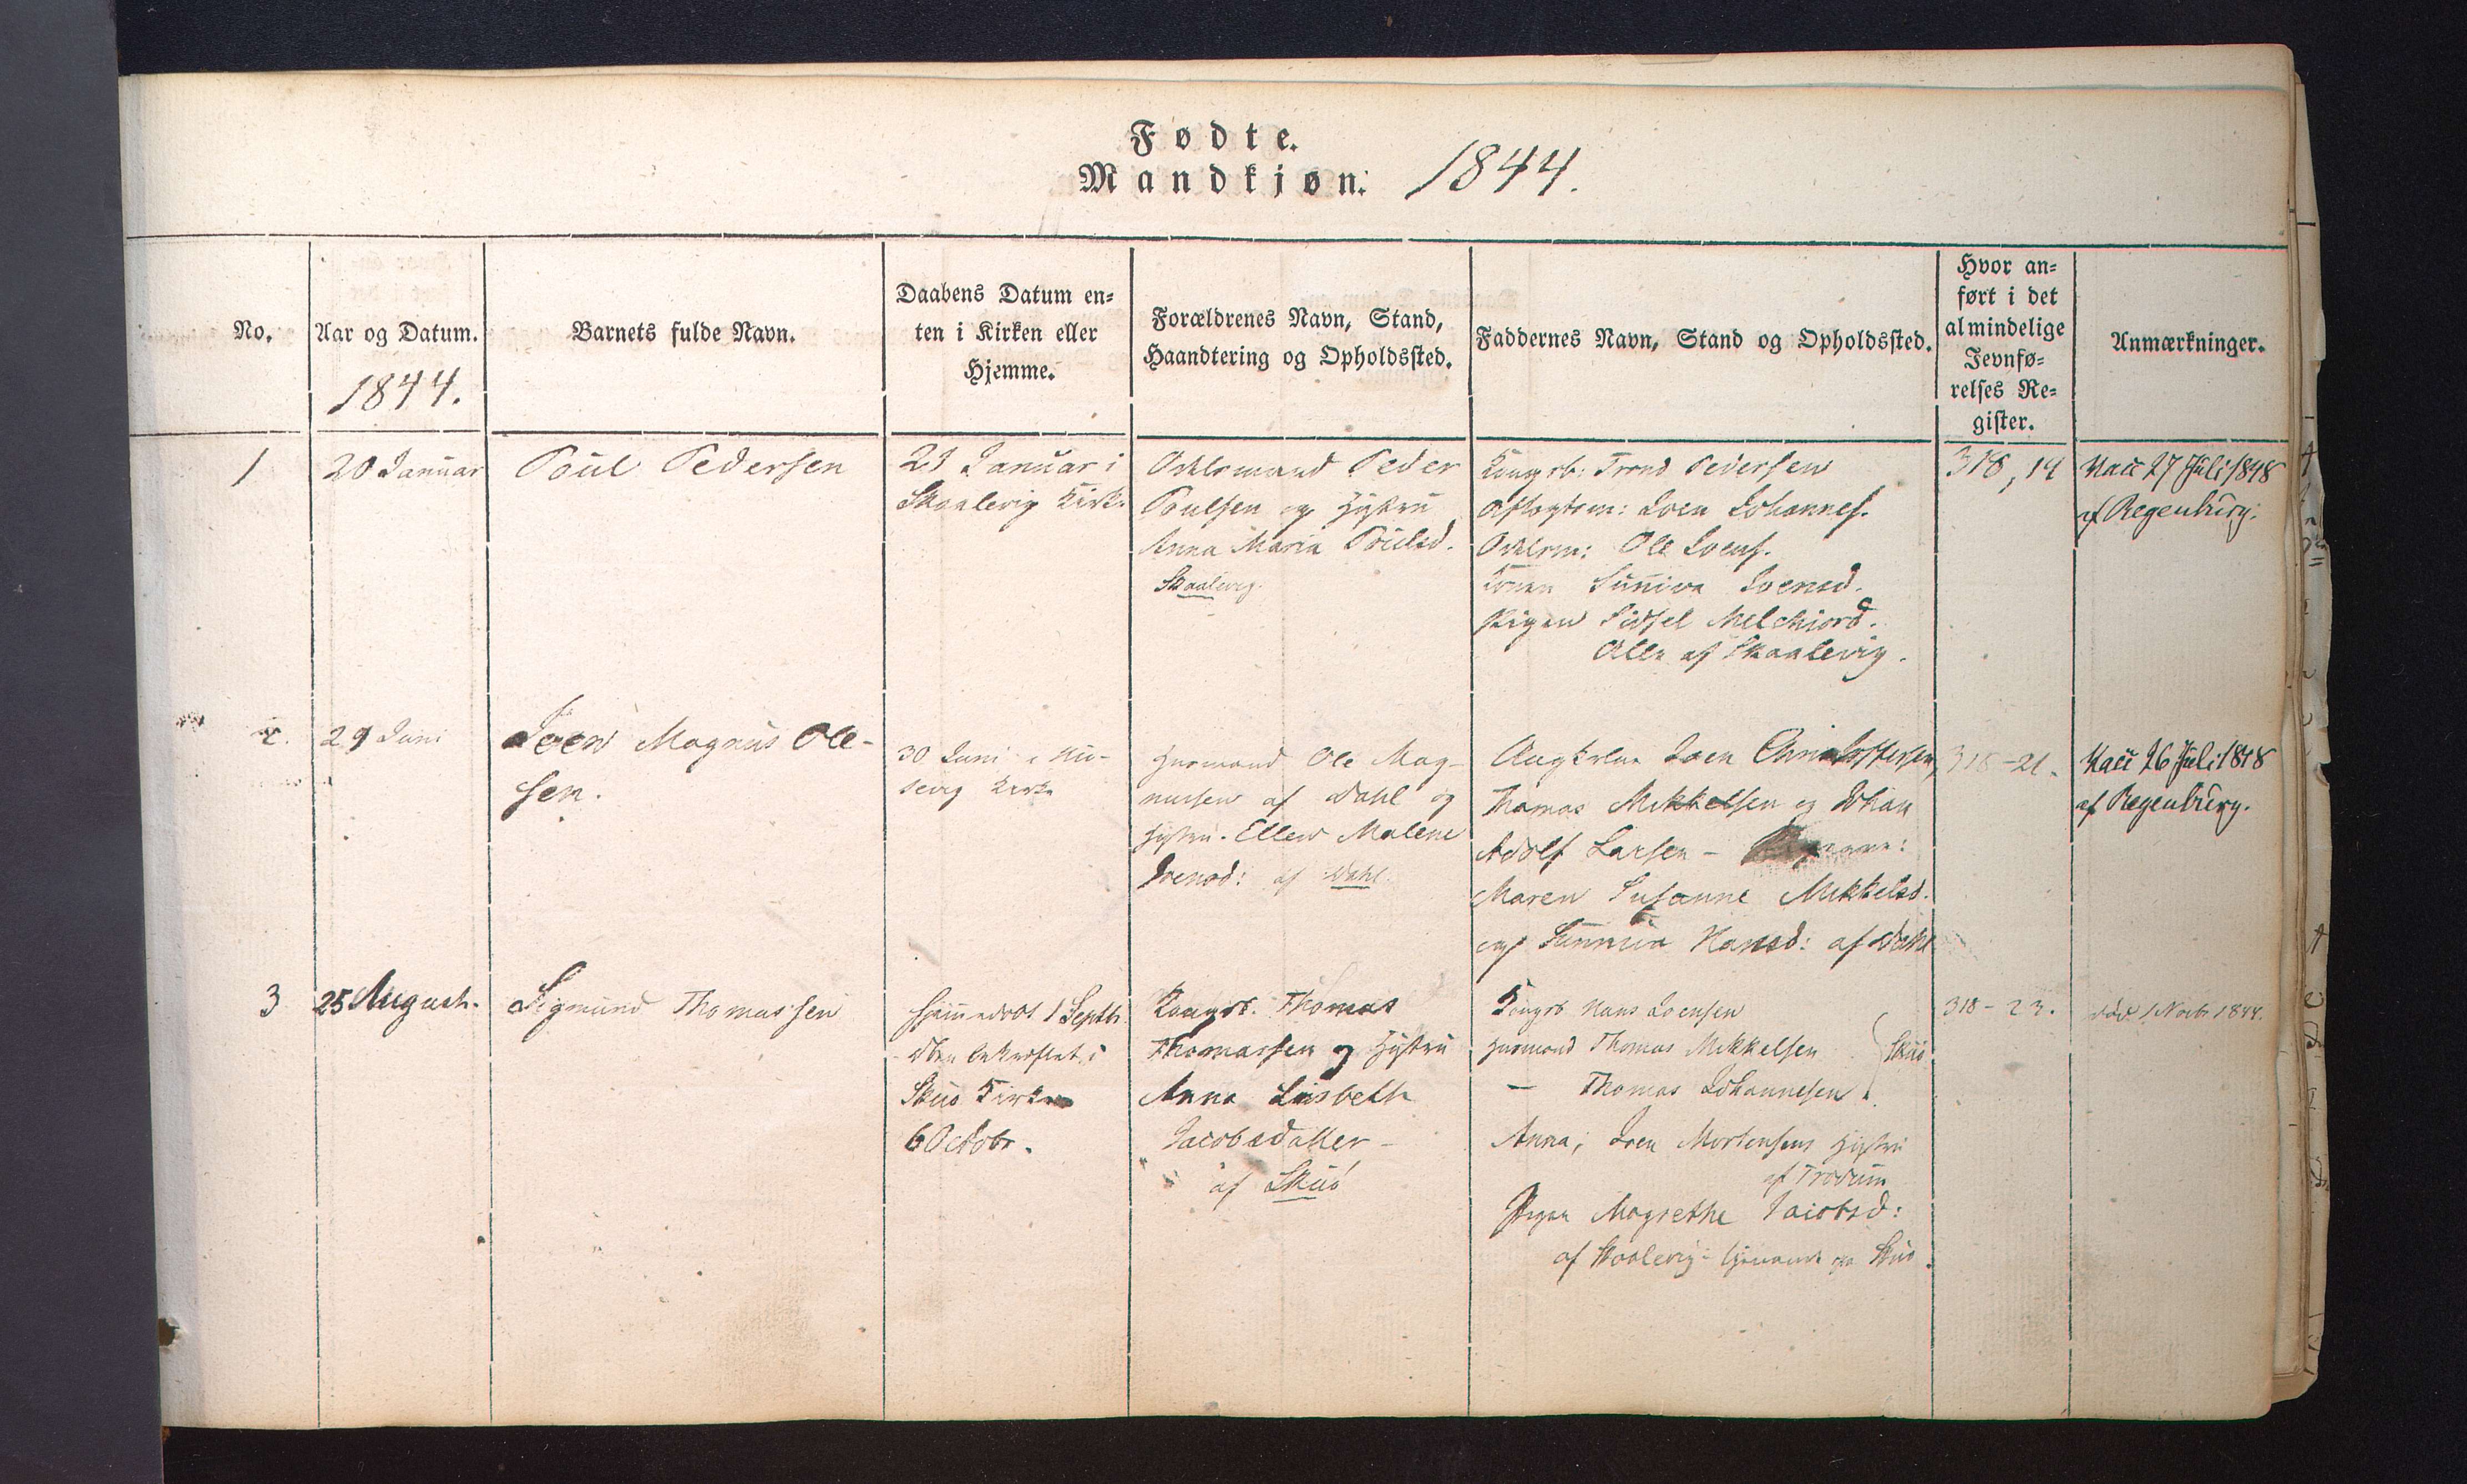 Fødte.
Mandkjøn. 1844.
No.
Aar og Datum.
1844.
Barnets fulde Navn.
Daabens Datum en-
ten i Kirken eller
Hjemme.
Forældrenes Navn, Stand,
Haandtering og Opholdssted.
Faddernes Navn, Stand og Opholdssted.
Hvor an-
ført i det
almindelige
Jevnfø-
relses Re-
gister.
Anmærkninger.
1
20 Januar
Poul Pedersen
21 Januar i
Skaalevig Kirke
Odelsmand Peder
Poulsen og Hustru
Anna Maria Poulsd.
Skaalevig.
Kongsb: Trond Pedersen
Aftægtsm: Joen Johannes.
Odelsm: Ole Joens.
Konen Sunniva Joensd.
Pigen Sidsel Melchiord.
Alle af Skaalevig.
318, 19
Vacc 27 Juli 1848
af Regenburg.
2.
29 Juni
Joen Magnus Ole-
sen.
30 Juni i Hu-
sevig Kirke
Huusmand Ole Mag-
nussen af Dahl og
Hustru Ellen Malene
Joensd: af Dahl.
Ungkarlene Joen Christoffersen,
Thomas Mikkelsen og Johan
Adolf Larsen –
Maren Susanne Mikkelsd.
og Sunniva Hansd: af Dahl
318–21.
Vacc 26 Juli 1848
af Regenburg.
3
25 August.
Sigmund Thomassen
Hjemmedøbt 1 Septbr.
Daaben bekræftet i
Skuø Kirke
6 Octobr.
Kongsb. Thomas
Thomassen og Hustru
Anna Lisbeth
Jacobsdatter –
af Skuø
Kongsb Hans Joensen
Huusmand Thomas Mikkelsen
Skuø
– Thomas Johannesen
Anna, Joen Mortensens Hustru
af Trodum
Pigen Magrethe Jacobsd:
af Skaalevig tjenende paa Skuø.
318–23.
død 1 Novbr 1844.